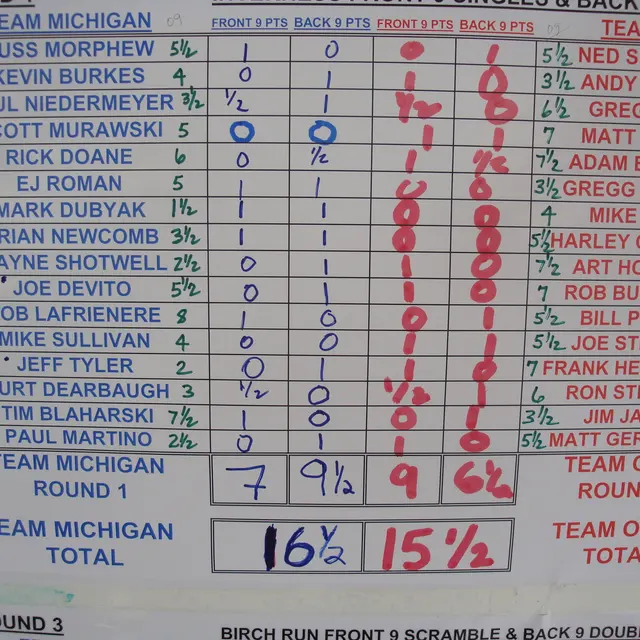 FRONT 9 SINGLES & BACK
TEAM MICHIGAN 09 FRONT 9 PTS BACK 9 PTS FRONT 9 PTS BACK 9 PTS 09 TEA
USS MORPHEW 5½ 1 0 0 1 5½ NED S
KEVIN BURKES 4 0 1 1 0 3½ ANDY
UL NIEDERMEYER 3½ ½ 1 ½ 0 6½ GREG
COTT MURAWSKI 5 0 0 1 1 7 MATT
RICK DOANE 6 0 ½ 1 ½ 7½ ADAM
EJ ROMAN 5 1 1 0 0 3½ GREGG
MARK DUBYAK 1½ 1 1 0 0 4 MIKE
RIAN NEWCOMB 3½ 1 1 0 0 5½ HARLEY
AYNE SHOTWELL 2½ 0 1 1 0 7½ ART HO
JOE DEVITO 5½ 0 1 1 0 7 ROB BU
OB LAFRIENERE 8 1 0 0 1 5½ BILL P
MIKE SULLIVAN 4 0 0 1 1 5½ JOE ST
JEFF TYLER 2 0 1 1 0 7 FRANK HE
URT DEARBAUGH 3 ½ 0 ½ 1 6 RON STE
TIM BLAHARSKI 7½ 1 0 0 1 3½ JIM JA
PAUL MARTINO 2½ 0 1 1 0 5½ MATT GER
TEAM MICHIGAN TEAM O
ROUND 1 7 9½ 9 6½ ROUN
TEAM MICHIGAN TEAM O
TOTAL 16½ 15½ TOTA
OUND 3
BIRCH RUN FRONT 9 SCRAMBLE & BACK 9 DOUB